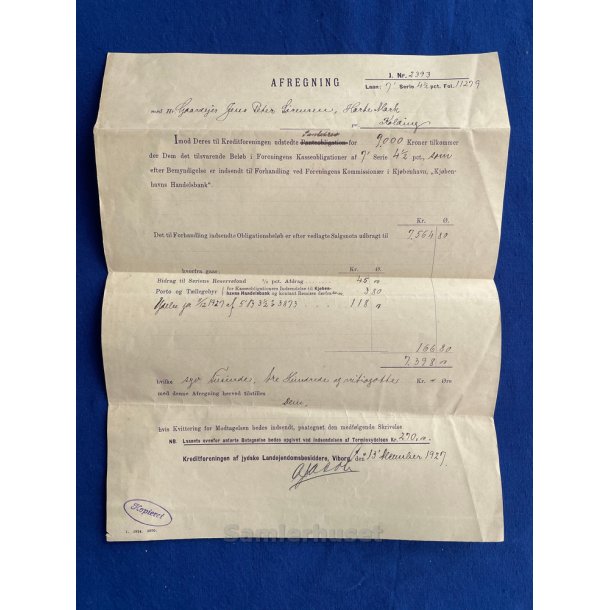 J. Nr. 2393
AFREGNING
Laan: 7' Serie 4½ pct. Fol. 11279
med Hr. Gaardejer Jens Peter Sørensen, Harte Mark
pr Kolding
Pantebrev
Imod Deres til Kreditforeningen udstedte Panteobligation for 9,000 Kroner tilkommer
der Dem det tilsvarende Beløb i Foreningens Kasseobligationer af 7' Serie 4½ pct., som
efter Bemyndigelse er indsendt til Forhandling ved Foreningens Kommissionær i Kjøbenhavn, „Kjøben-
havns Handelsbank".
Kr. Ø.
Det til Forhandling indsendte Obligationsbeløb er efter vedlagte Salgsnota udbragt til 7,564 80
hvorfra gaar: Kr. Ø.
Bidrag til Seriens Reservefond ½ pct. Afdrag 45 "
Porto og Tællegebyr for Kasseobligationers Indsendelse til Kjøben-
havns Handelsbank og kontant Remises derfra 3 80
11/12 1927 af 118 "
166 80
7,398 "
hvilke syv Tusinde, tre Hundrede og otteoghalvfems Kr. " Øre
med denne Afregning herved tilstilles
Dem,
hvis Kvittering for Modtagelsen bedes indsendt, paategnet den medfølgende Skrivelse.
NB. Laanets ovenfor anførte Betegnelse bedes opgivet ved Indsendelsen af Terminsydelsen Kr. 270,"
Kreditforeningen af jydske Landejendomsbesiddere, Viborg, den 13' December 1927.
Kopieret
Samlerhuset